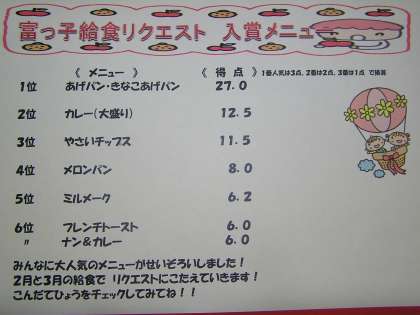 富っ子給食リクエスト 入賞メニュー
《 メニュー 》 《 得 点 》 1番人気は3点、2番は2点、3番は1点 で換算
1位 あげパン・きなこあげパン 27.0
2位 カレー(大盛り) 12.5
3位 やさいチップス 11.5
4位 メロンパン 8.0
5位 ミルメーク 6.2
6位 フレンチトースト 6.0
〃 ナン&カレー 6.0
みんなに大人気のメニューがせいぞろいしました!
2月と3月の給食で リクエストにこたえていきます!
こんだてひょうをチェックしてみてね!!